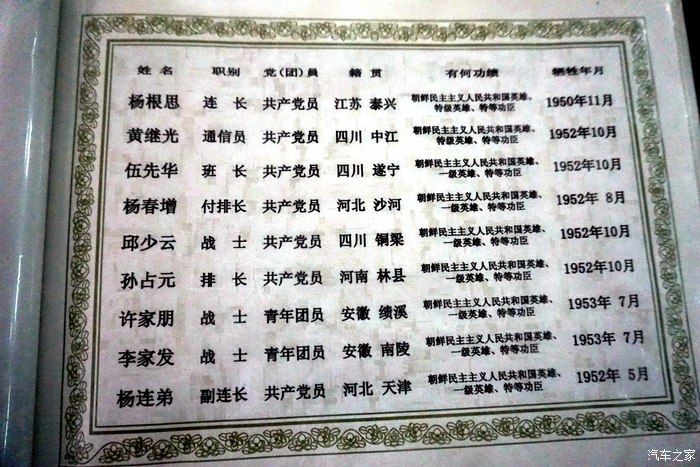 姓名 职别 党(团)员 籍贯 有何功绩 牺牲年月
杨根思 连长 共产党员 江苏 泰兴 朝鲜民主主义人民共和国英雄、特级英雄、特等功臣 1950年11月
黄继光 通信员 共产党员 四川 中江 朝鲜民主主义人民共和国英雄、特级英雄、特等功臣 1952年10月
伍先华 班长 共产党员 四川 遂宁 朝鲜民主主义人民共和国英雄、一级英雄、特等功臣 1952年10月
杨春增 付排长 共产党员 河北 沙河 朝鲜民主主义人民共和国英雄、一级英雄、特等功臣 1952年 8月
邱少云 战士 共产党员 四川 铜梁 朝鲜民主主义人民共和国英雄、一级英雄、特等功臣 1952年10月
孙占元 排长 共产党员 河南 林县 朝鲜民主主义人民共和国英雄、一级英雄、特等功臣 1952年10月
许家朋 战士 青年团员 安徽 绩溪 朝鲜民主主义人民共和国英雄、一级英雄、特等功臣 1953年 7月
李家发 战士 青年团员 安徽 南陵 朝鲜民主主义人民共和国英雄、一级英雄、特等功臣 1953年 7月
杨连弟 副连长 共产党员 河北 天津 朝鲜民主主义人民共和国英雄、一级英雄、特等功臣 1952年 5月
汽车之家